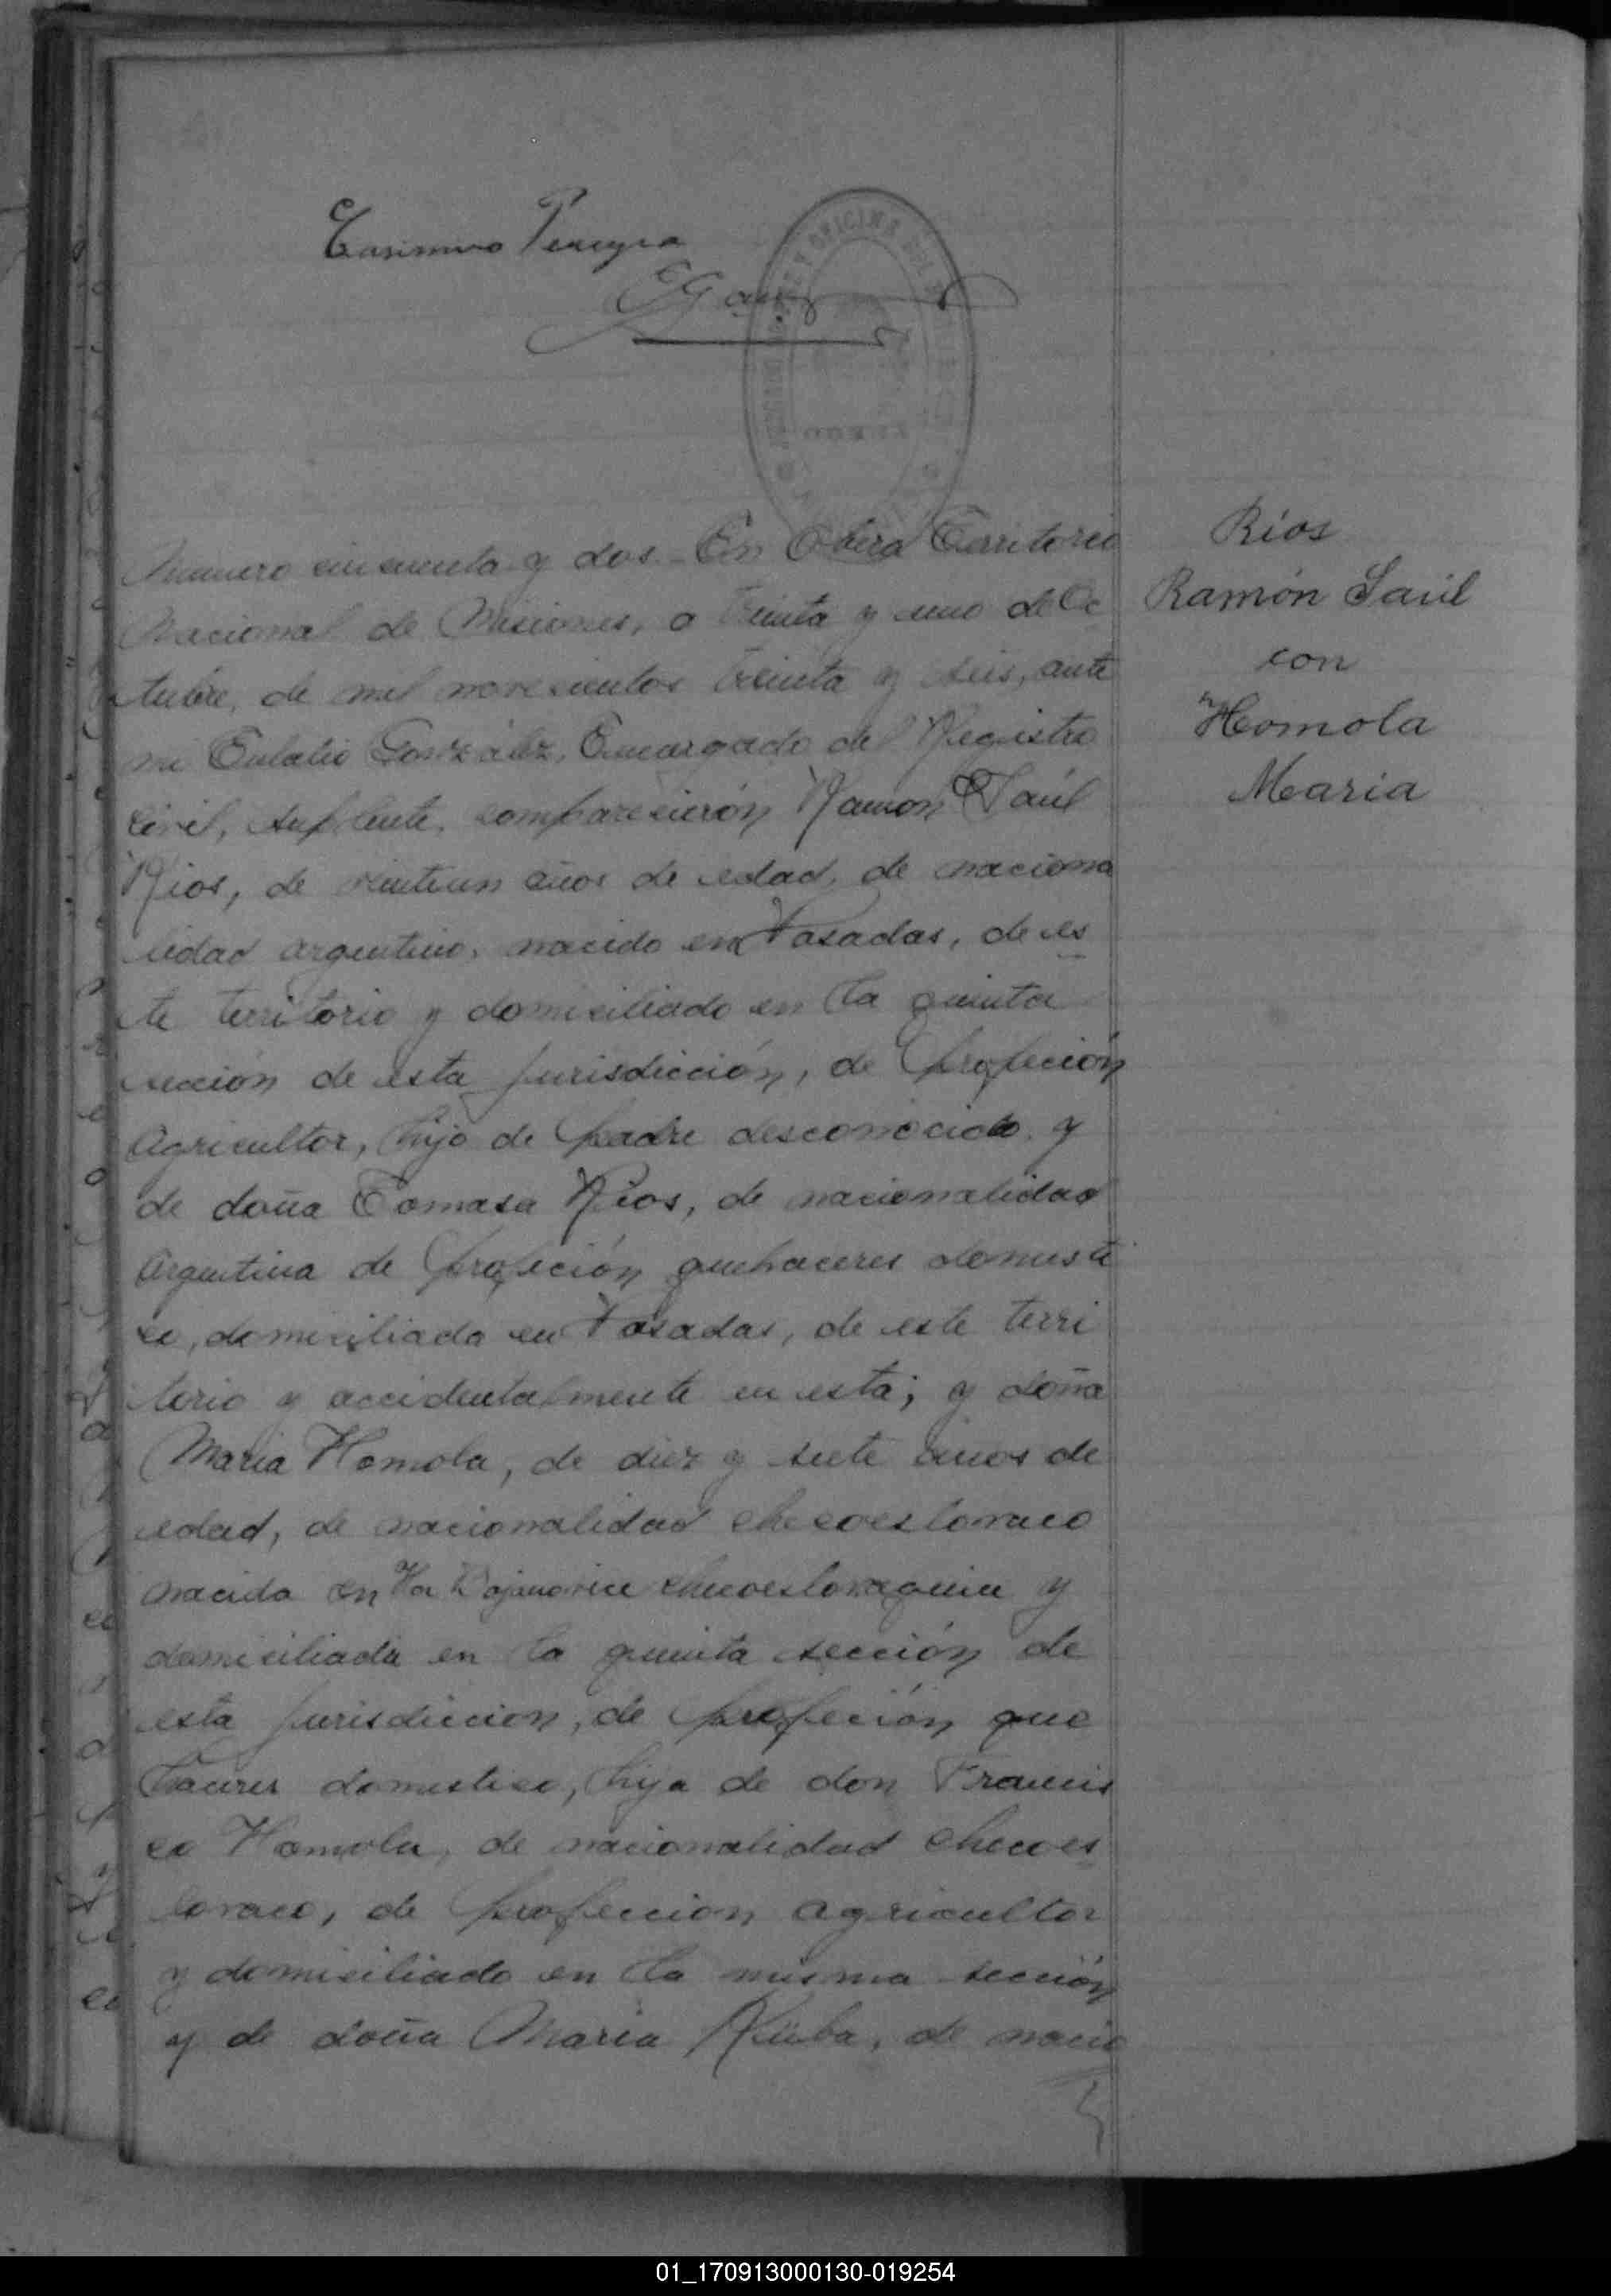 Casimiro Pereyra
EGonz
Numero cincuenta y dos - En Oberá Territorio
Nacional de Misiones, a treinta y uno de Oc
tubre, de mil novecientos treinta y seis, ante
mi Eulalio González, Encargado del Registro
Civil, suplente, comparecierón Ramon Saúl
Rios, de veintiun años de edad, de naciona
lidad argentino, nacido en Posadas, de es
te territorio y domiciliado en la quinta
sección de esta jurisdicción, de profeción
Agricultor, hijo de padre desconocido y
de doña Tomasa Rios, de nacionalidad
Argentina de profeción quehaceres domesti
co, domiciliada en Posadas, de este terri
torio y accidentalmente en esta; y doña
Maria Homola, de diez y siete años de
edad, de nacionalidad checoeslovaco
nacida en checoeslovaquia y
domiciliada en la quinta sección de
esta jurisdiccion, de profeción que
haceres domestico, hija de don Francis
co Homola, de nacionalidad checoes
lovaco, de profeccion agricultor
y domiciliado en la misma sección
y de doña Maria Kuba, de nacio
Ríos
Ramón Saúl
con
Homola
Maria
01_170913000130-019254